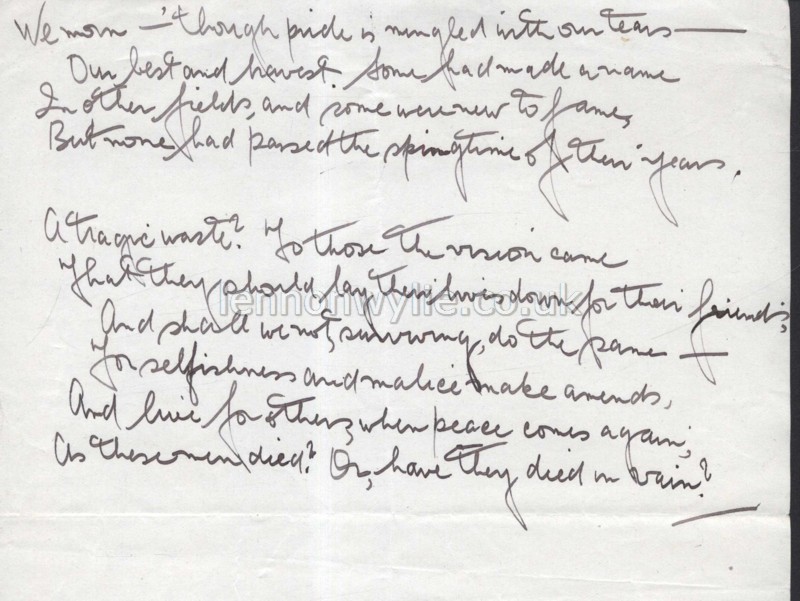 We morn — 'though pride is mingled with our tears —
Our best and bravest. Some had made a name
In other fields, and some were new to fame,
But none had passed the springtime of their years.
A tragic waste? To those the vision came
That they should lay their lives down for their friends;
And shall we not, surviving, do the same —
For selfishness and malice make amends,
And live for others, when peace comes again,
As these men died? Or, have they died in vain?
lennonwylie.co.uk